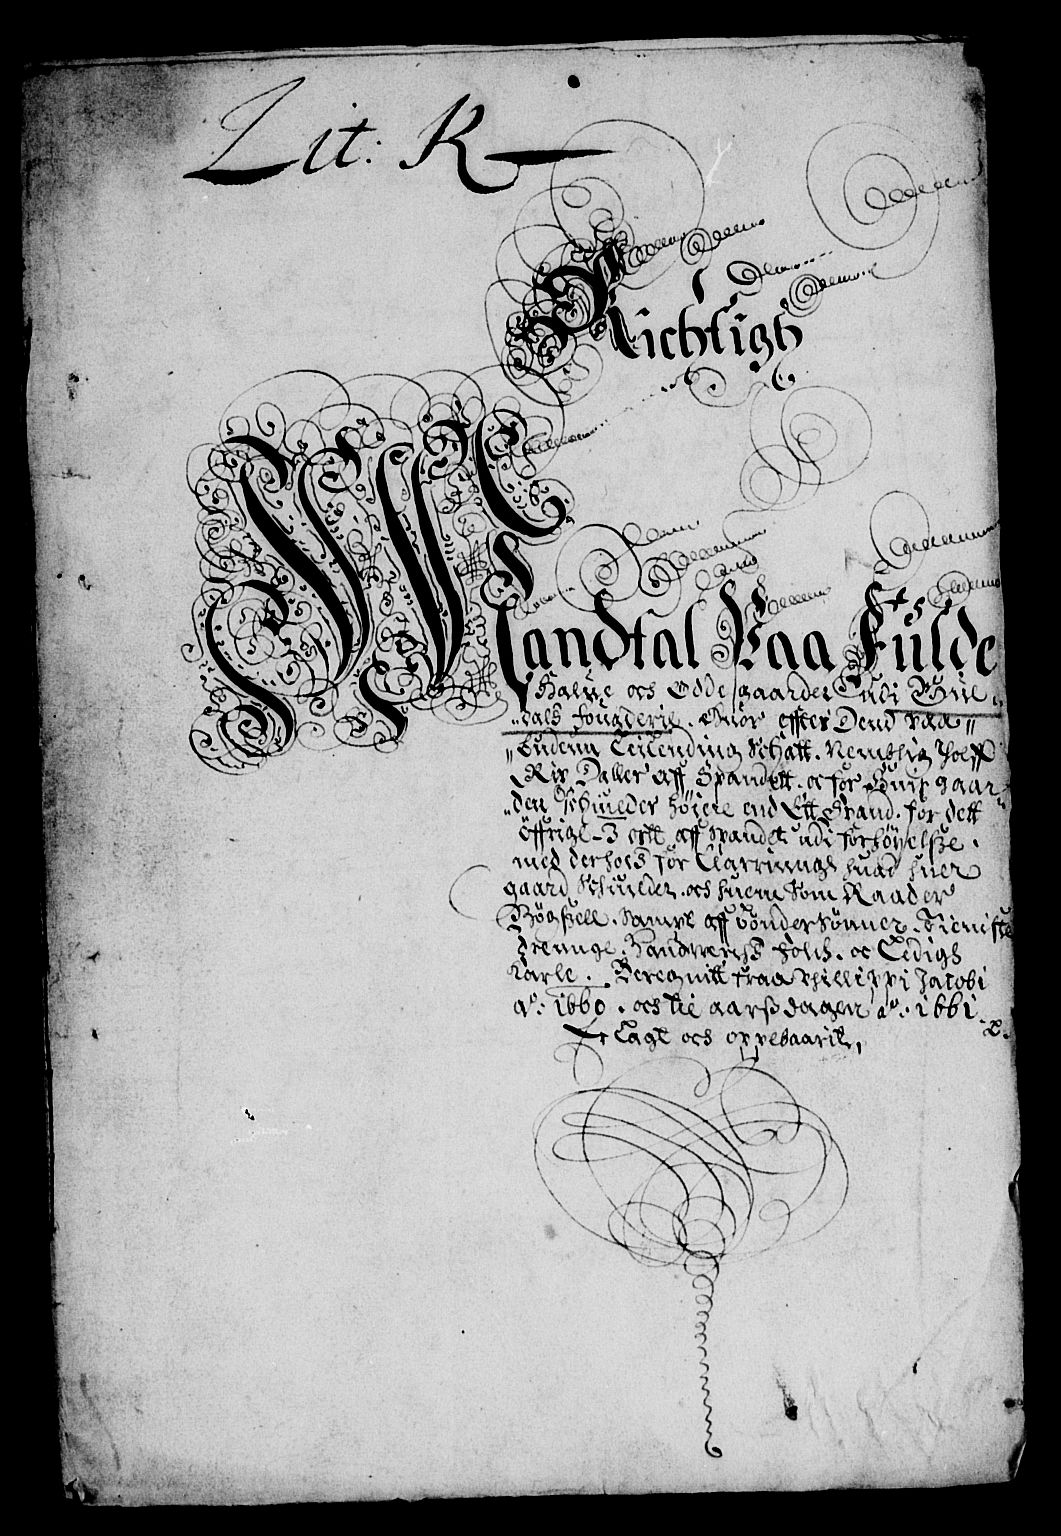 Lit: R
Richtigh
Mandtal Paa Fulde
Halfue och Ødde gaarder udi Gul-
dals fougderie. Huor effter Dend paa
budenn Schatt. Nemblig Tolff
Rix Daller aff Spandett. oc for huis gaar
den Schuelder høiere end Ett Spand. for dett
offrige 3 ortt aff spandet udi forhøyelsse.
med derhoes for Clarrinngh huad huer
gaard Schuelder. och huem som Raader
Bøgsell. Sampt aff bønder sønner. Tieniste
Drennge. Handtwerchs folch. oc Ledigh
Karle. Beregnitt fraa Phillippi Jacobi
a°: 1660. och til aarss dagen a°: 1661
Lagt och oppebaaritt,